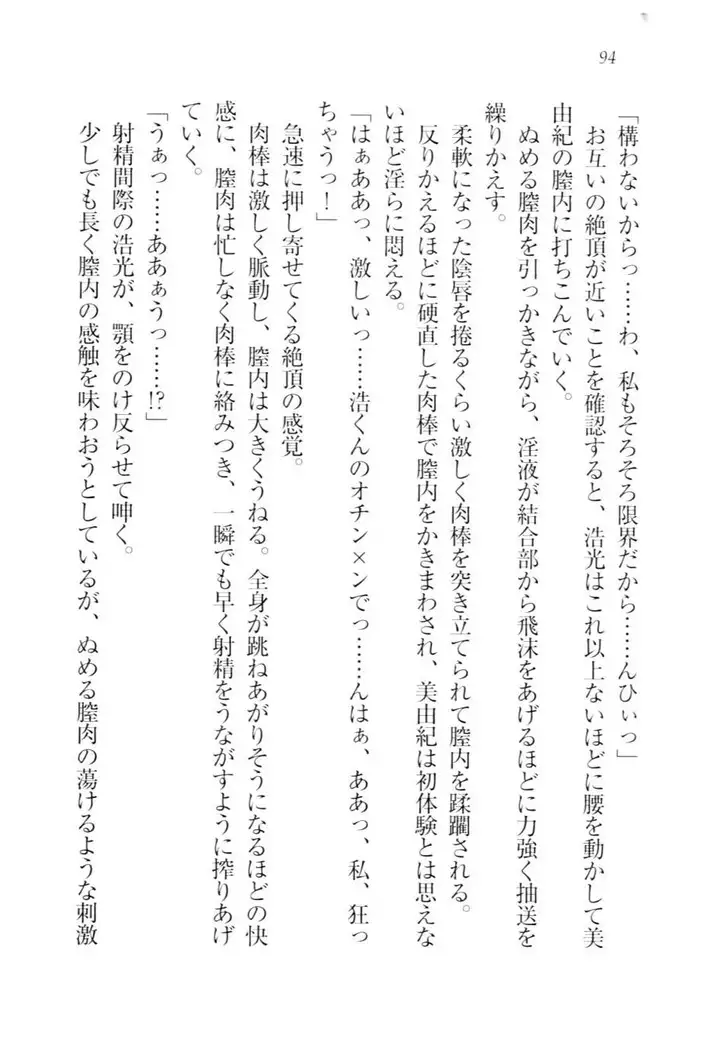 94
「構わないからっ……わ、私もそろそろ限界だから……んひぃっ」
お互いの絶頂が近いことを確認すると、浩光はこれ以上ないほどに腰を動かして美
由紀の膣内に打ちこんでいく。
ぬめる膣肉を引っかきながら、淫液が結合部から飛沫をあげるほどに力強く抽送を
繰りかえす。
柔軟になった陰唇を捲るくらい激しく肉棒を突き立てられて膣内を蹂躙される。
反りかえるほどに硬直した肉棒で膣内をかきまわされ、美由紀は初体験とは思えな
いほど淫らに悶える。
「はぁああっ、激しいっ……浩くんのオチン×ンでっ……んはぁ、ああっ、私、狂っ
ちゃうっ！」
急速に押し寄せてくる絶頂の感覚。
肉棒は激しく脈動し、膣内は大きくうねる。全身が跳ねあがりそうになるほどの快
感に、膣肉は忙しなく肉棒に絡みつき、一瞬でも早く射精をうながすように搾りあげ
ていく。
「うぁっ……ああぁうっ……!?」
射精間際の浩光が、顎をのけ反らせて呻く。
少しでも長く膣内の感触を味わおうとしているが、ぬめる膣肉の蕩けるような刺激